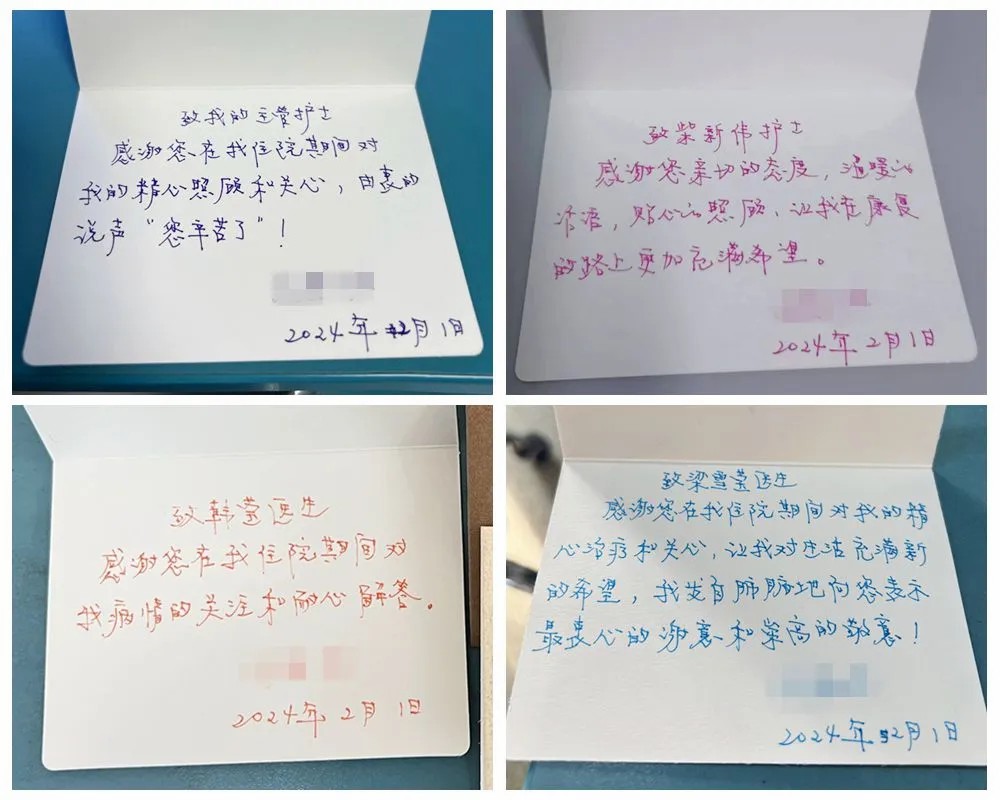 致我的主管护士
感谢您在我住院期间对
我的精心照顾和关心，由衷的
说声“您辛苦了”！
2024年2月1日
致柴新伟护士
感谢您亲切的态度，温暖的
话语，贴心的照顾，让我在康复
的路上更加充满希望。
2024年2月1日
致韩莹医生
感谢您在我住院期间对
我病情的关注和耐心解答。
2024年2月1日
致梁雪莹医生
感谢您在我住院期间对我的精
心治疗和关心，让我对生活充满新
的希望，我发自肺腑地向您表示
最衷心的谢意和崇高的敬意！
2024年2月1日